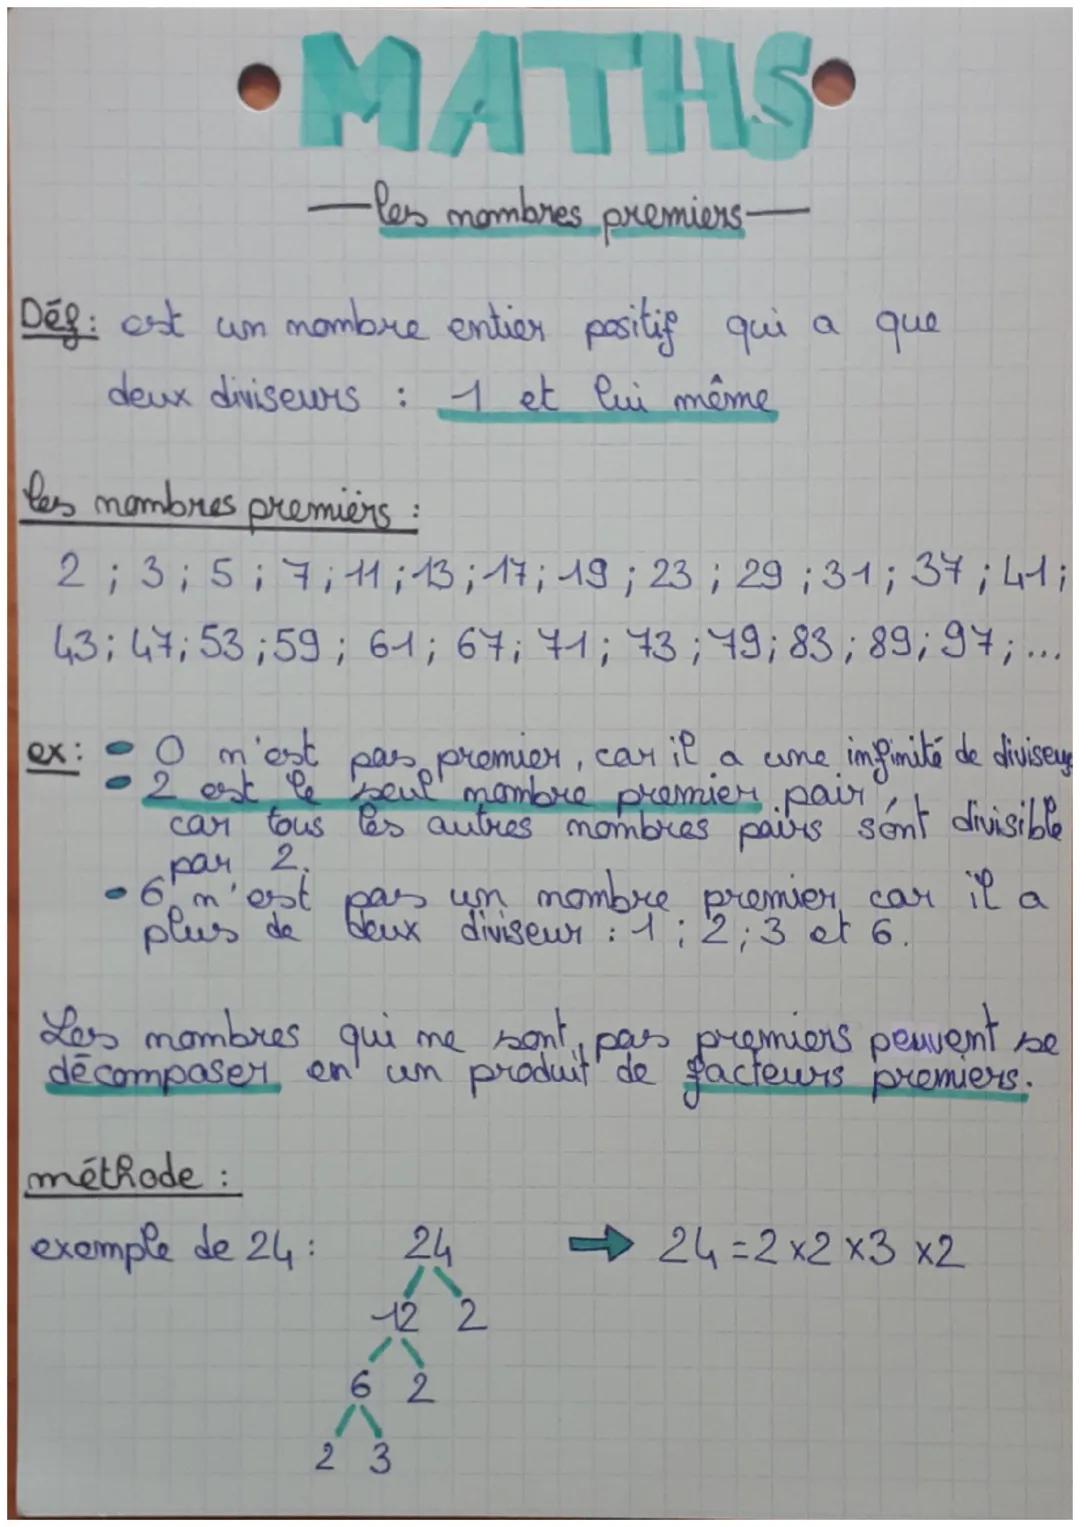 •MATHS•
les nombres premiers
Déf: est un nombre entier positif qui a que
deux diviseurs : 1 et lui même
les nombres premiers :
2 ; 3 ; 5 ; 7 ; 11 ; 13 ; 17 ; 19 ; 23 ; 29 ; 31 ; 37 ; 41 ;
43 ; 47 ; 53 ; 59 ; 61 ; 67 ; 71 ; 73 ; 79 ; 83 ; 89 ; 97 ; ...
ex: • 0 n'est pas premier, car il a une infinité de diviseurs
• 2 est le seul nombre premier pair,
car tous les autres nombres pairs sont divisible
par 2.
• 6 n'est pas un nombre premier car il a
plus de deux diviseur : 1 ; 2 ; 3 et 6.
Les nombres qui ne sont pas premiers peuvent se
décomposer en un produit de facteurs premiers.
méthode :
exemple de 24 : 24 → 24 = 2 x 2 x 3 x 2
12 2
6 2
2 3